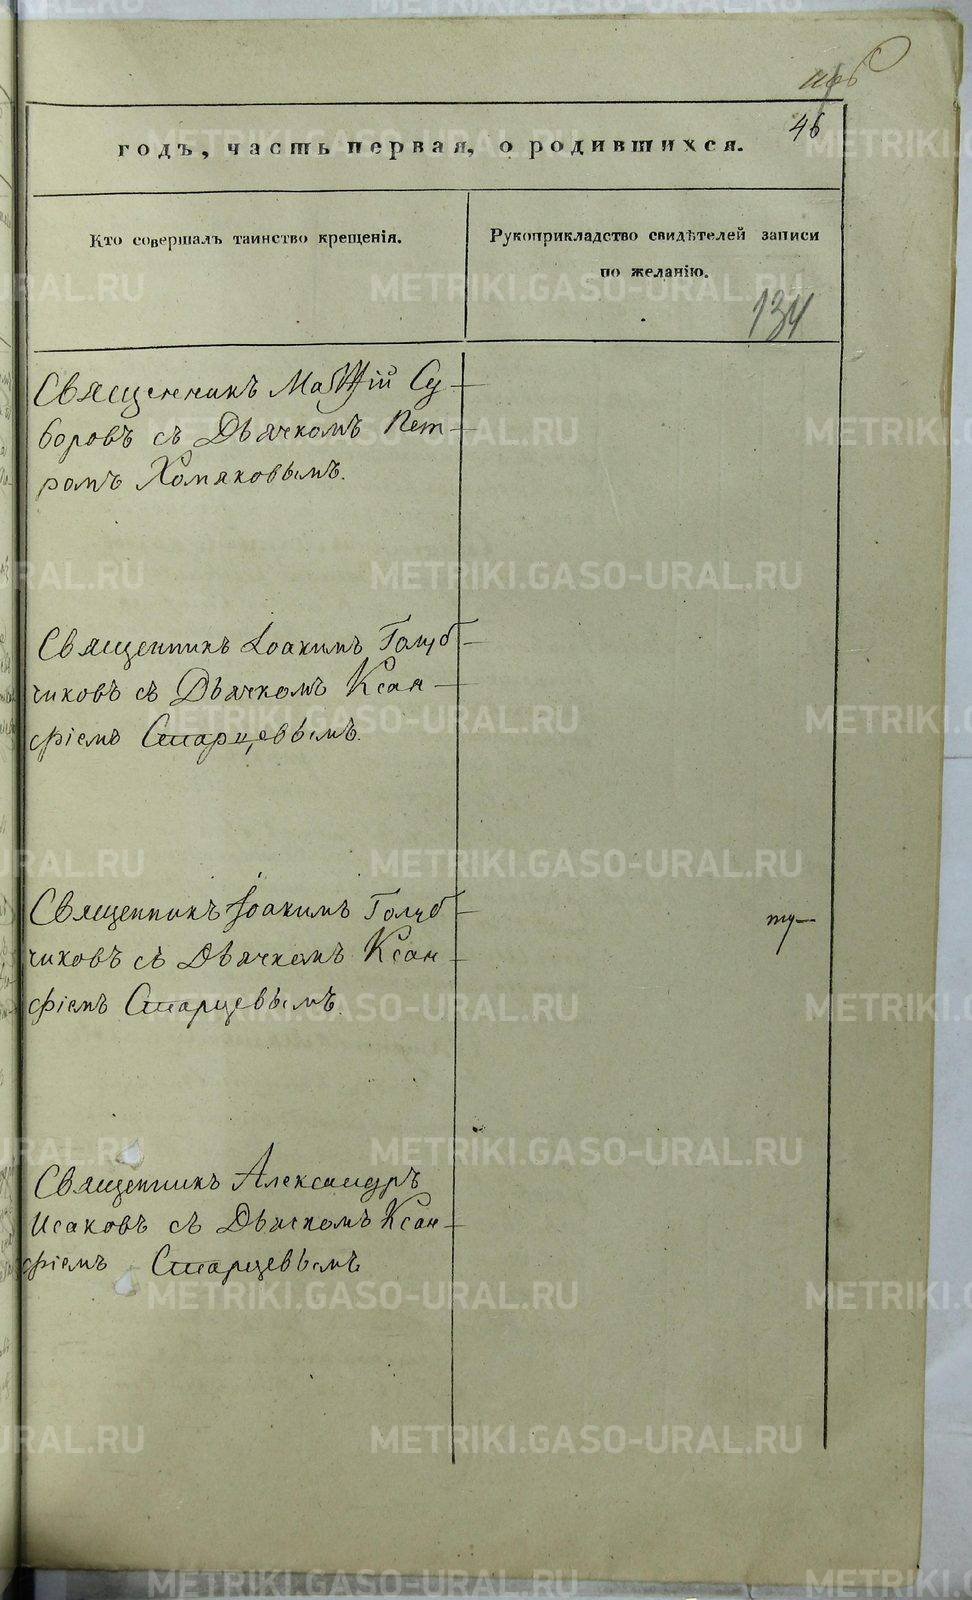 46
годъ, часть первая, о родившихся.
Кто совершалъ таинство крещенія.
Рукоприкладство свидѣтелей записи
по желанію.
134
Священникъ Матѳій Су-
воровъ съ Дьячкомъ Пет-
ромъ Хомяковымъ.
Священникъ Іоакимъ Голуб-
чиковъ съ Дьячкомъ Ксан-
фіемъ Старцевымъ.
Священникъ Іоакимъ Голуб-
чиковъ съ Дьячкомъ Ксан-
фіемъ Старцевымъ.
ту-
Священникъ Александръ
Исаковъ съ Дьячкомъ Ксан-
фіемъ Старцевымъ
METRIKI.GASO-URAL.RU